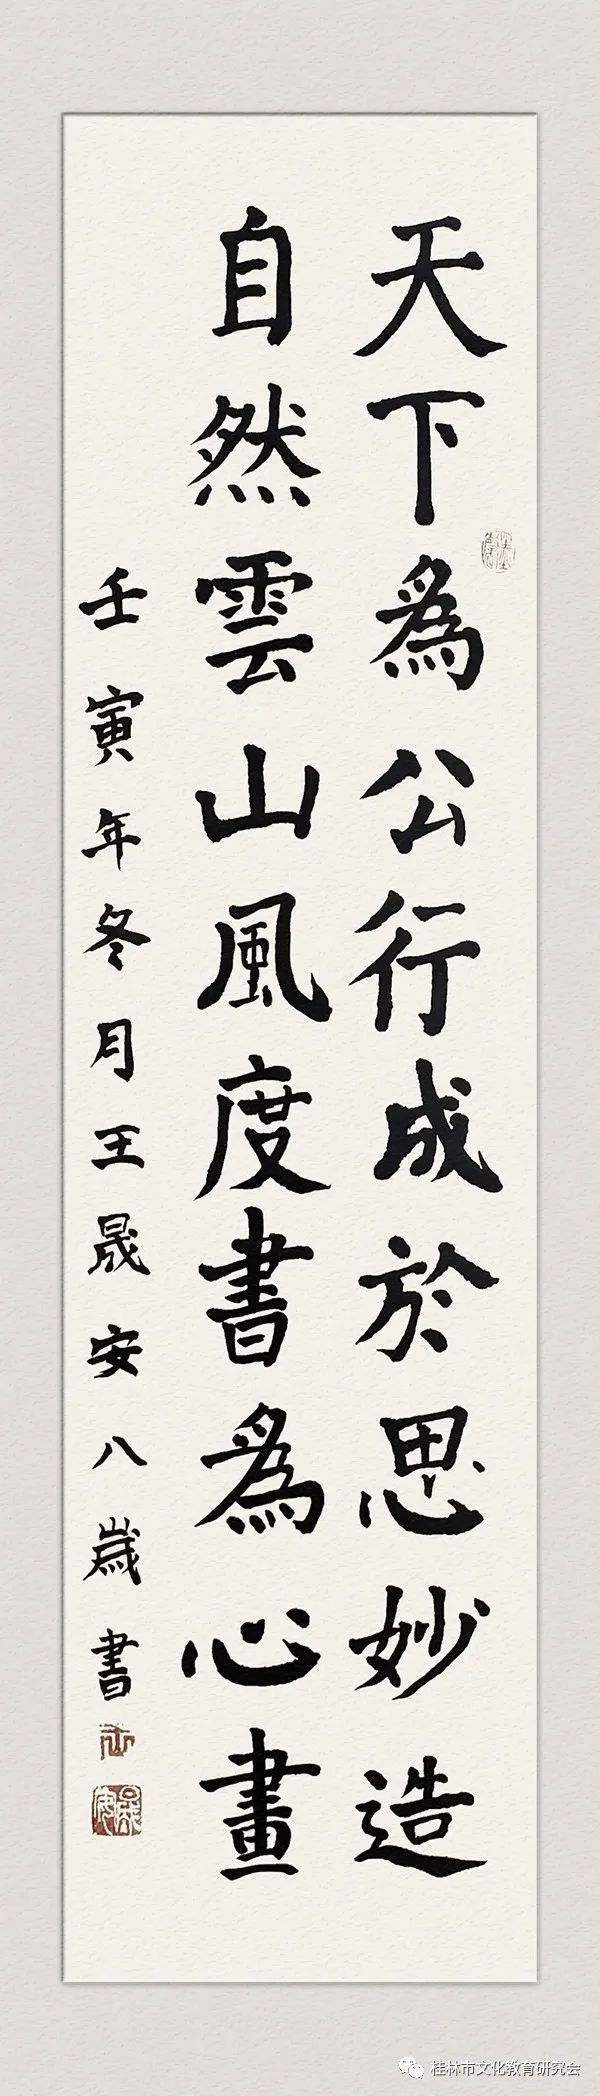 天下爲公行成於思妙造
自然雲山風度書爲心畫
壬寅年冬月王晟安八歲書
王
晟安
桂林市文化教育研究会